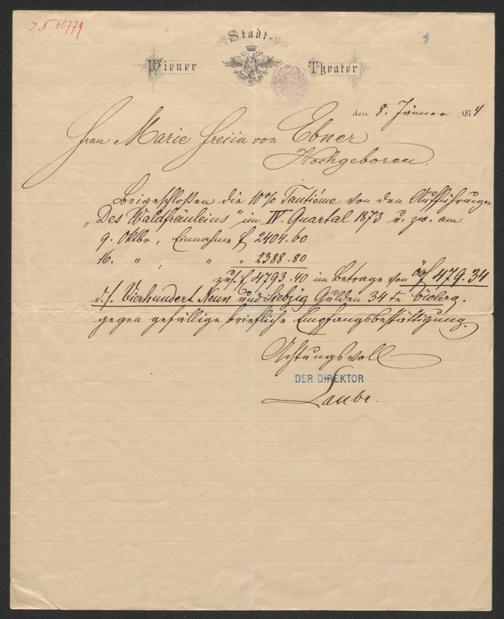 I.N 60779
Wiener Stadt-Theater
den 8. Jänner 1874
Frau Marie Freiin von Ebner
Hochgeboren.
Beigeschloßen die 10% Tantième von den Aufführungen
„Des Waldfräuleins“ im IV. Quartal 1873 u. zw. am
9. Oktbr, Einnahme f 2404.60
16. „ , „ „ 2388.80
zus. f 4793.40 im Betrage von öf 479.34
d. s. Vierhundert Neun und Siebzig Gulden 34
gegen gefällige briefliche Empfangsbestättigung.
Achtungsvoll
DER DIREKTOR
Laube.